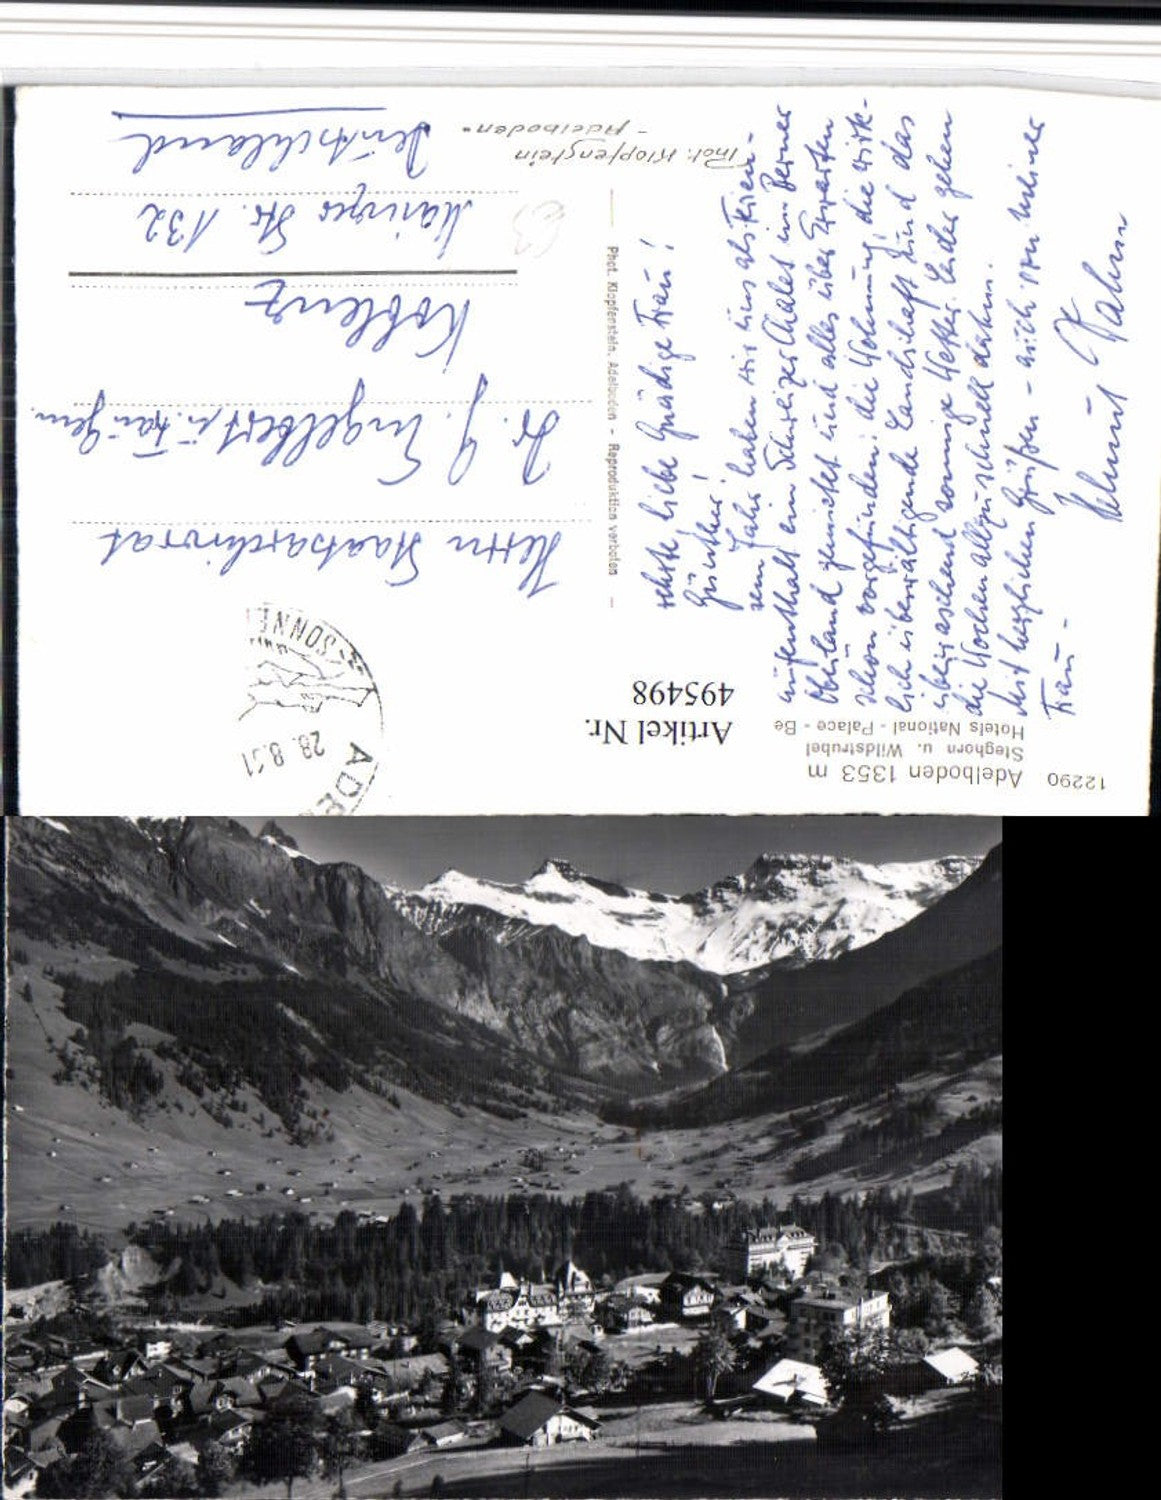 12290
Adelboden 1353 m
Steghorn u. Wildstrubel
Hotels National - Palace - Be
Artikel Nr.
495498
Sehr, liebe Gnädige Frau!
Günther!
sem Jahr haben wir uns als Ferien-
aufenthalt ein Schweizer Chalet im Berner
Oberland gemietet und alles über Erwarten
schön vorgefunden: die Wohnung, die wirk-
lich überwältigende Landschaft und das
überraschend sonnige Wetter. Leider gehen
die Wochen allzu schnell dahin.
Mit herzlichen Grüßen - auch von meiner
Frau -
Helmut Dahm
Phot. Klopfenstein, Adelboden - Reproduktion verboten
Phot. Klopfenstein
- Adelboden -
ADE
28. 8. 61
SONNE
Herrn Staatsarchivrat
Dr. J. Engelbert u. Frau Gem.
Koblenz
Mainzer Str. 132
Deutschland